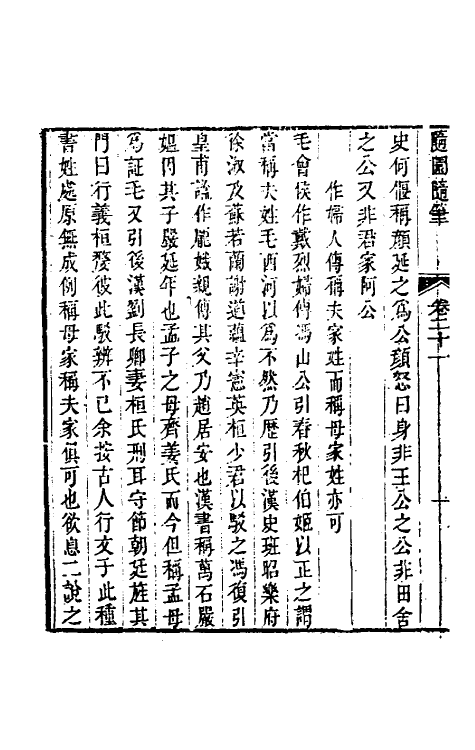 隨園隨筆 卷二十一 十
史何偃稱顏延之爲公顏怒曰身非王公之公非田舍
之公又非君家阿公
作婦人傳稱夫家姓而稱母家姓亦可
毛會侯作戴烈婦傳馮山公引春秋杞伯姬以正之謂
當稱夫姓毛西河以爲不然乃歷引後漢史班昭樂府
徐淑及蘇若蘭謝道蘊辛憲英桓少君以駁之馮復引
皇甫謐作龐娥親傳其父乃趙居安也漢書稱萬石嚴
嫗因其子嚴延年也孟子之母齊姜氏而今但稱孟母
爲証毛又引後漢劉長卿妻桓氏刑耳守節朝廷旌其
門曰行義桓嫠彼此駁辨不已余按古人行文于此種
書姓處原無成例稱母家稱夫家俱可也欲息二說之